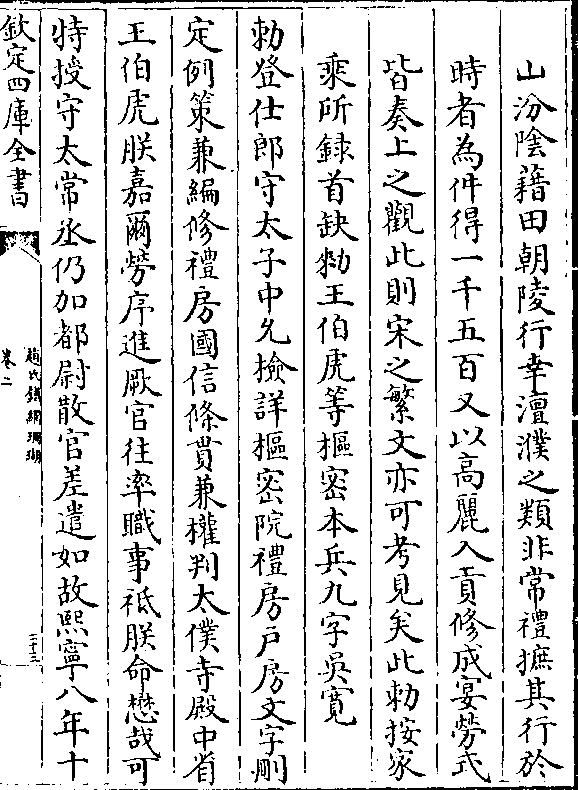 山汾陰藉田朝陵行幸澶濮之類非常禮摭其行於
時者為件得一千五百又以高麗入貢修成宴勞式
皆奏上之觀此則宋之繁文亦可考見矣此勅按家
乘所録首缺勑王伯虎等樞密本兵九字吳寬
勅登仕郎守太子中允撿詳樞密院禮房戸房文字刪
定例策兼編修禮房國信條貫兼權判太僕寺殿中省
王伯虎朕嘉爾勞序進厥官往率職事祗朕命懋哉可
特授守太常丞仍加都尉散官差遣如故熙寧八年十
欽定四庫全書
趙氏鐵網珊瑚
卷二
二十三